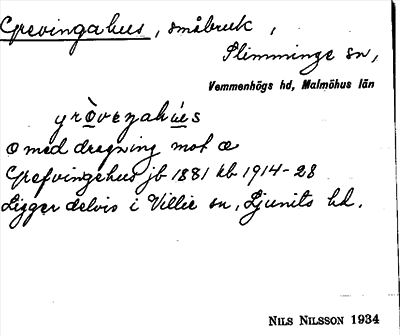 Grevingahus, småbruk,
Slimminge sn,
Vemmenhögs hd, Malmöhus län
grò̱veŋahú̱s
o med dragning mot œ
Grefvingehus jb 1881 kb 1914-28
Ligger delvis i Villie sn, Ljunits hd.
NILS NILSSON 1934